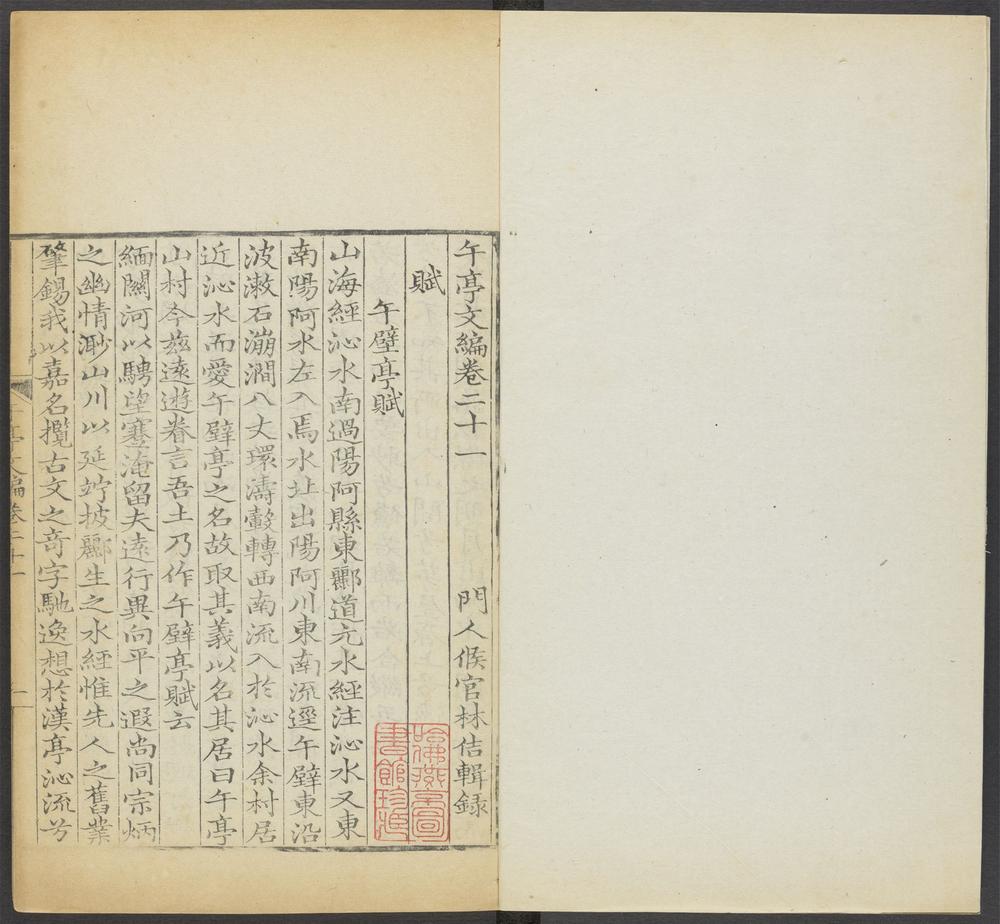 午亭文編卷二十一
門人候官林佶輯錄
賦
午壁亭賦
山海經沁水南過陽阿縣東酈道元水經注沁水又東
南陽阿水左入焉水北出陽阿川東南流逕午壁東沿
波漱石漰澗八丈環濤轂轉西南流入於沁水余村居
近沁水而愛午壁亭之名故取其義以名其居曰午亭
山村今茲遠遊眷言吾土乃作午壁亭賦云
緬關河以騁望蹇淹留夫遠行異向平之遐尚同宗炳
之幽情渺山川以延竚披酈生之水經惟先人之舊業
肇錫我以嘉名攬古文之奇字馳逸想於漢亭沁流兮
哈佛燕京圖
書館珍藏